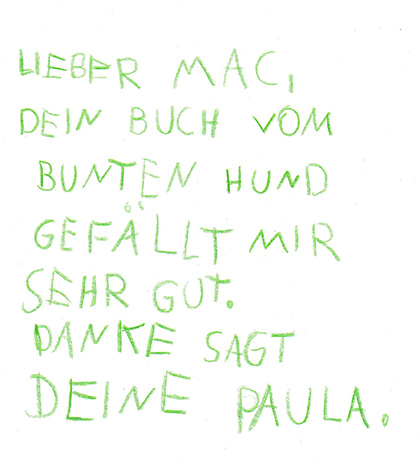 LIEBER MAC,
DEIN BUCH VOM
BUNTEN HUND
GEFÄLLT MIR
SEHR GUT.
DANKE SAGT
DEINE PAULA.